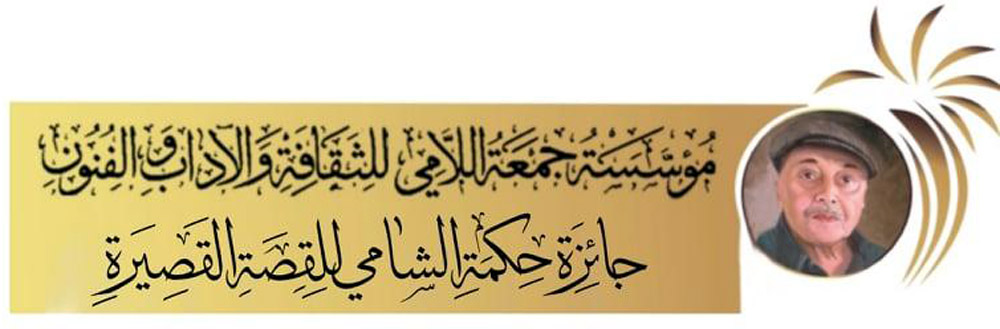 مُؤسَّسَةُ جُمعَة اللَّامِي لِلثَقَافَةِ وَالآدَابِ وَالفُنُونِ
جائِزَة حِكمَةِ الشامي لِلقِصَةِ القَصِيرَةِ